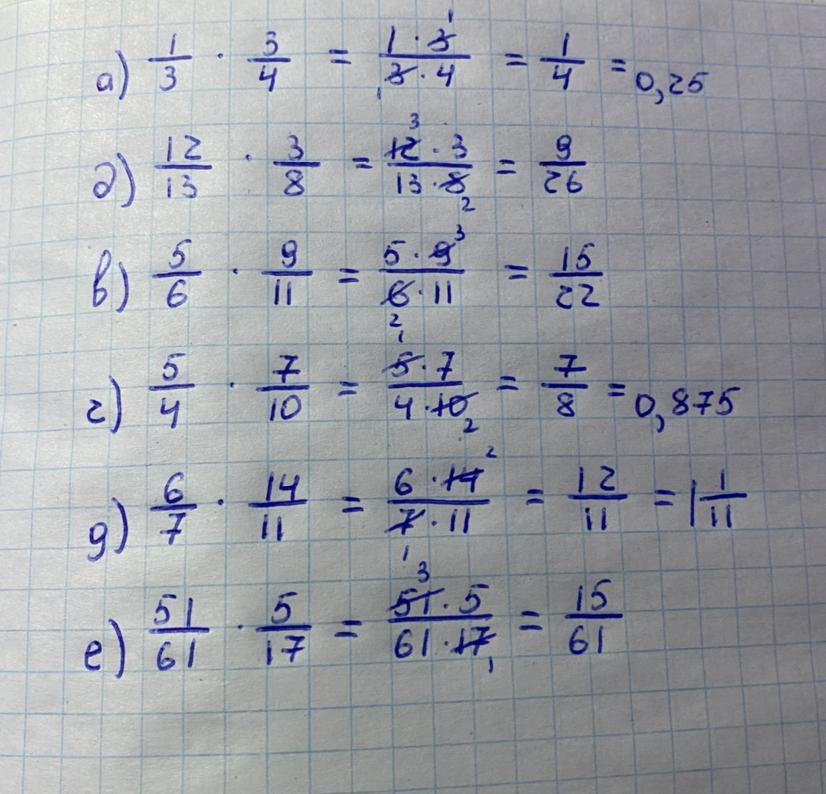 а) 1/3 · 3/4 = 1·3/3·4 = 1/4 = 0,25
б) 12/13 · 3/8 = 12·3/13·8 = 9/26
в) 5/6 · 9/11 = 5·9/6·11 = 15/22
г) 5/4 · 7/10 = 5·7/4·10 = 7/8 = 0,875
д) 6/7 · 14/11 = 6·14/7·11 = 12/11 = 1 1/11
е) 51/61 · 5/17 = 51·5/61·17 = 15/61